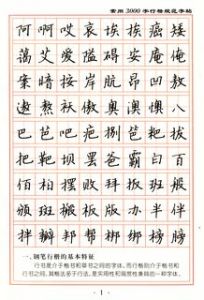 常用3000字行楷规范字帖
阿啊哎哀埃挨癌矮
蔼艾爱隘碍安氨俺
案暗按岸肮昂凹敖
遨熬袄傲奥澳懊八
巴芭吧疤捌笆粑拔
把靶坝罢爸霸白百
佰柏摆败拜扳班般
颁斑搬板版办半伴
拌瓣邦帮梆绑榜膀
一、钢笔行楷的基本特征
行书是介于楷书和草书之间的字体，而行楷则介于楷书和
行书之间，其楷法多于行法，是实用性和观赏性兼具的一种字体。
· 1 ·